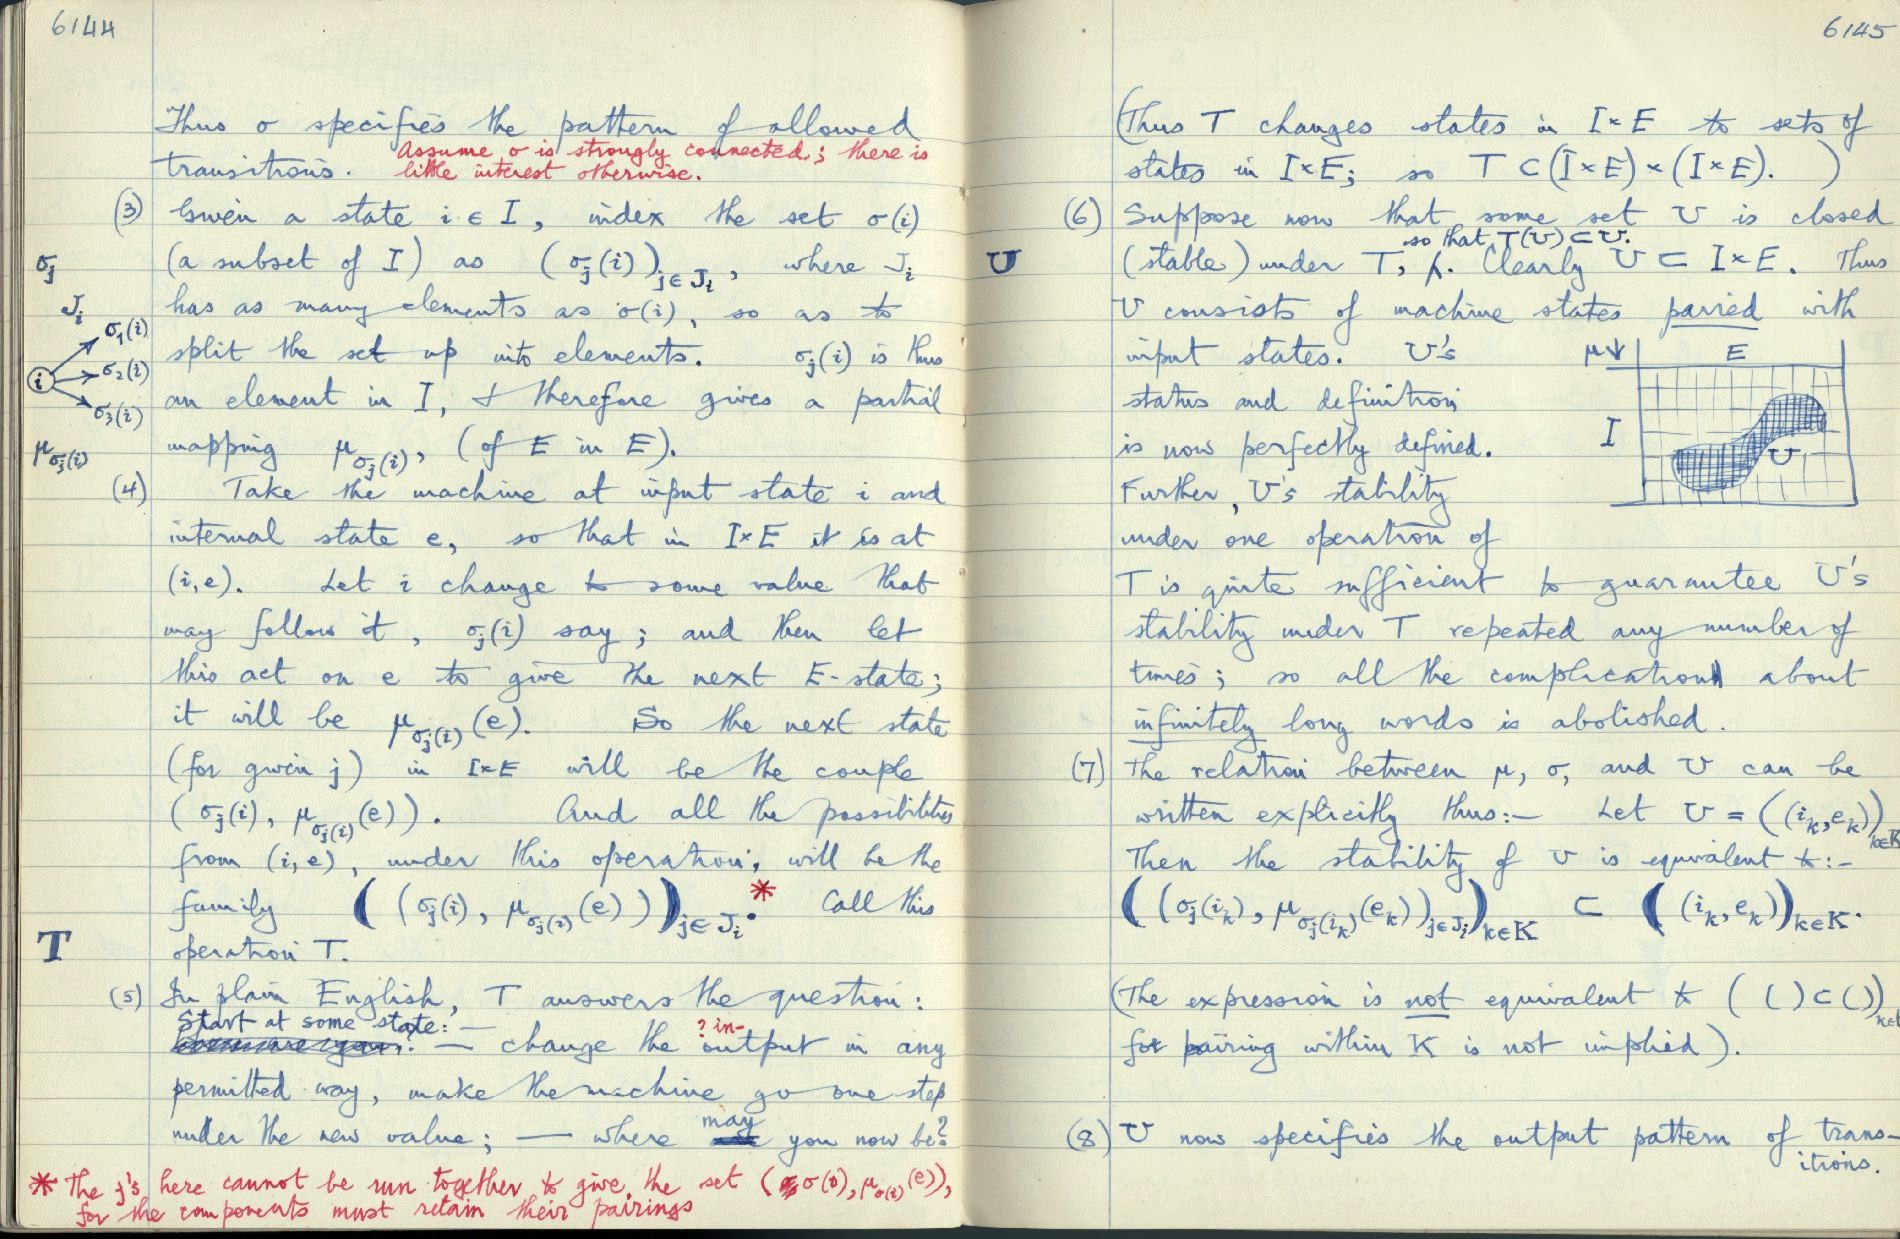 6144
Thus σ specifies the pattern of allowed
transitions. Assume σ is strongly connected; there is
little interest otherwise.
(3) Given a state i ∈ I, index the set σ(i)
σj (a subset of I) as (σj(i))j∈Ji, where Ji
Ji has as many elements as σ(i), so as to
split the set up into elements. σj(i) is thus
i σ1(i) σ2(i) σ3(i)
an element in I, & therefore gives a partial
μσj(i) mapping μσj(i), (of E in E).
(4) Take the machine at input state i and
internal state e, so that in I×E it is at
(i,e). Let i change to some value that
may follow it, σj(i) say; and then let
this act on e to give the next E-state;
it will be μσj(i)(e). So the next state
(for given j) in I×E will be the couple
(σj(i), μσj(i)(e)). And all the possibilities
from (i,e), under this operation, will be the
family ((σj(i), μσj(i)(e)))j∈Ji.* Call this
T operation T.
(5) In plain English, T answers the question:
Start at some state: —
— change the output in any
? in-
permitted way, make the machine go one step
under the new value; — where may you now be?
* The j's here cannot be run together to give the set (σ(i), μσ(i)(e)),
for the components must retain their pairings
6145
(Thus T changes states in I×E to sets of
states in I×E; so T ⊂ (I×E)×(I×E). )
(6) Suppose now that some set U is closed
so that T(U) ⊂ U.
U (stable) under T, ∧. Clearly U ⊂ I×E. Thus
U consists of machine states paired with
input states. U's
status and definition
is now perfectly defined.
Further, U's stability
under one operation of
μ↓ E
I
U
T is quite sufficient to guarantee U's
stability under T repeated any number of
times; so all the complication about
infinitely long words is abolished.
(7) The relation between μ, σ, and U can be
written explicitly thus:— Let U = ((ik,ek))k∈K
Then the stability of U is equivalent to:-
((σj(ik), μσj(ik)(ek))j∈Ji)k∈K ⊂ ((ik,ek))k∈K.
(The expression is not equivalent to ( ( ) ⊂ ( ))k∈K
for pairing within K is not implied).
(8) U now specifies the output pattern of trans-
itions.